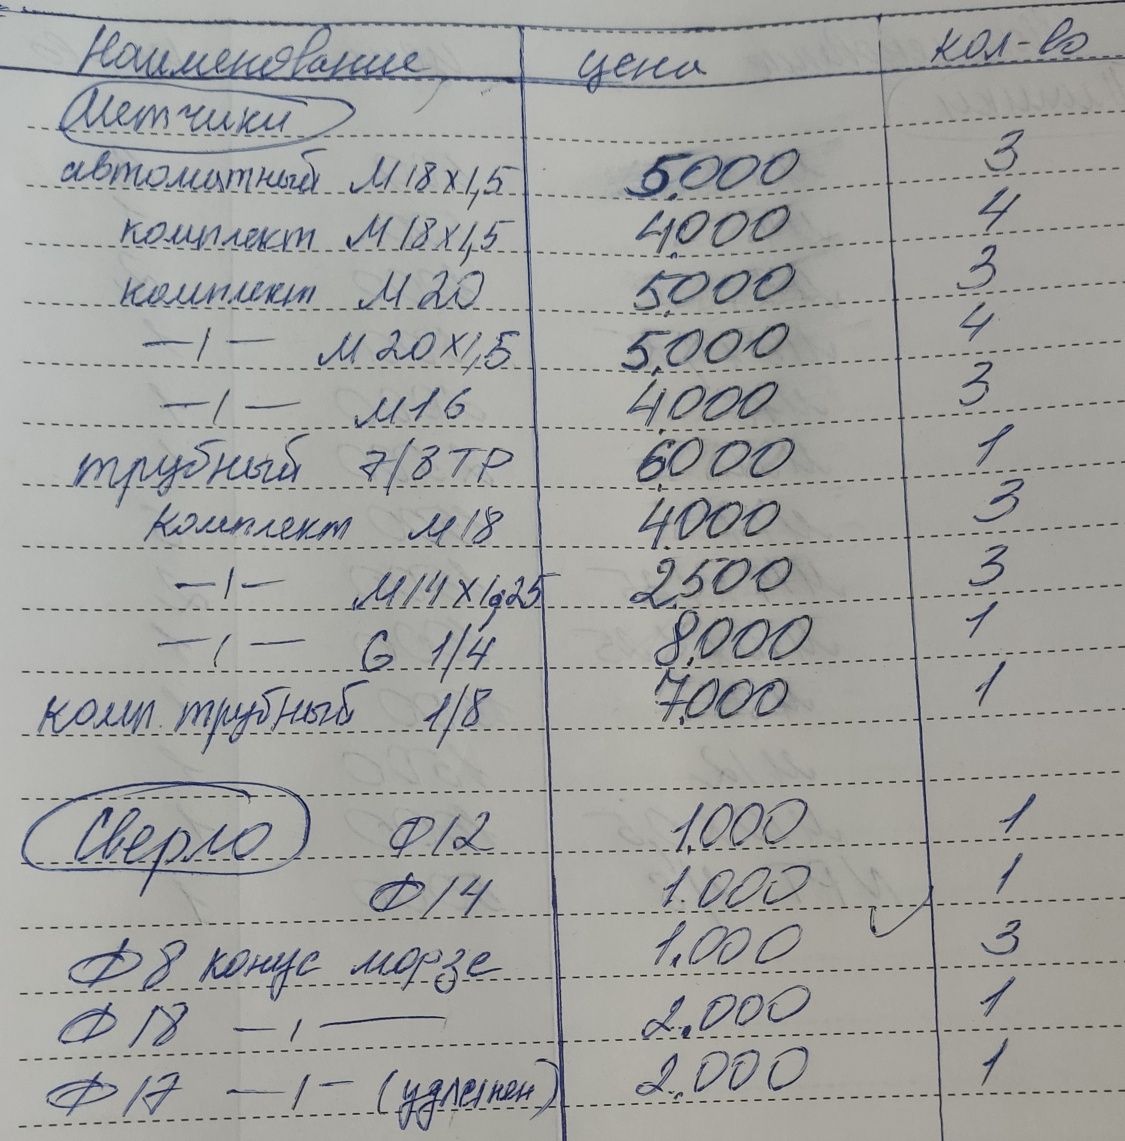 Наименование цена кол-во
Метчики
автоматный М18х1,5 5.000 3
комплект М18х1,5 4.000 4
комплект М20 5.000 3
—ı— М20х1,5 5.000 4
—ı— М16 4.000 3
трубный 7/8 ТР 6.000 1
комплект М18 4000 3
—ı— М14х1,25 2.500 3
—ı— G 1/4 8.000 1
комп. трубный 1/8 7.000 1
Сверло Ф12 1.000 1
Ф14 1.000 1
Ф8 конус морзе 1.000 3
Ф18 —ı— 2.000 1
Ф17 —ı— (удлинен) 2.000 1